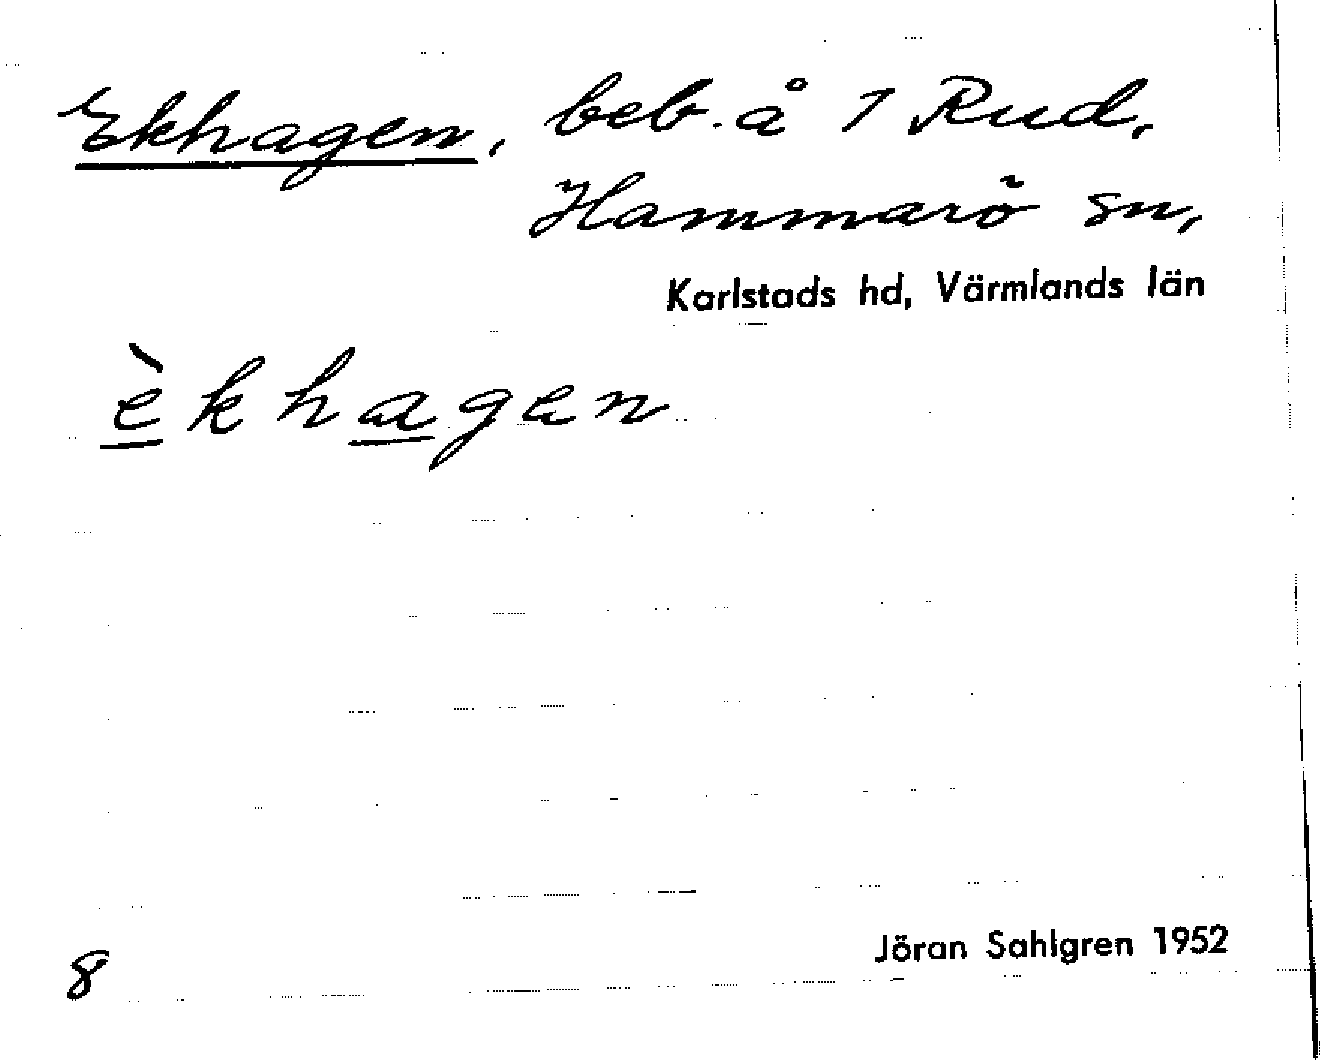 Ekhagen, beb. å 1 Rud,
Hammarö sn,
Karlstads hd, Värmlands län
èkhagen
Jöran Sahlgren 1952
8